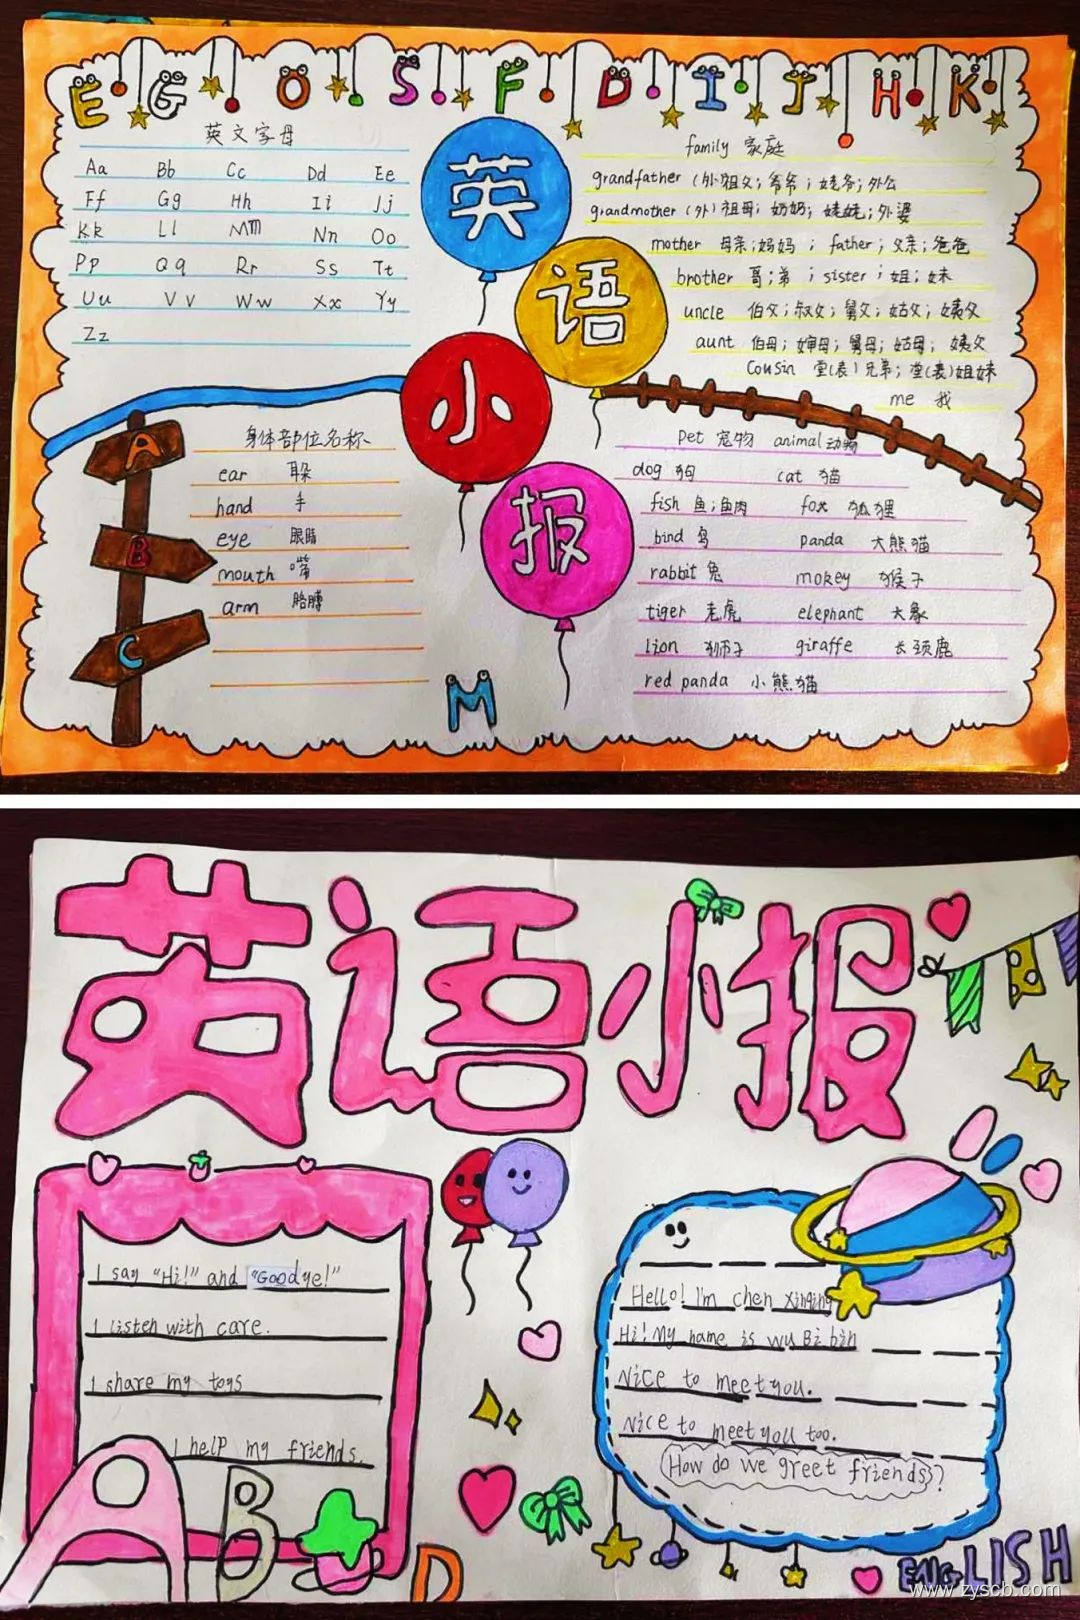 E G O S F D I J H K
英文字母
Aa Bb Cc Dd Ee
Ff Gg Hh Ii Jj
Kk Ll Mm Nn Oo
Pp Qq Rr Ss Tt
Uu Vv Ww Xx Yy
Zz
英
语
小
报
family 家庭
grandfather (外)祖父；爷爷；姥爷；外公
grandmother (外)祖母；奶奶；姥姥；外婆
mother 母亲；妈妈； father；父亲；爸爸
brother 哥；弟； sister；姐；妹
uncle 伯父；叔父；舅父；姑父；姨父
aunt 伯母；婶母；舅母；姑母； 姨父
Cousin 堂(表)兄弟；堂(表)姐妹
me 我
A
B
C
身体部位名称
ear 耳朵
hand 手
eye 眼睛
mouth 嘴
arm 胳膊
M
Pet 宠物 animal 动物
dog 狗 cat 猫
fish 鱼；鱼肉 fox 狐狸
bind 鸟 panda 大熊猫
rabbit 兔 mokey 猴子
tiger 老虎 elephant 大象
lion 狮子 giraffe 长颈鹿
red panda 小熊猫
英语小报
I say "Hi!" and "Goodye!"
I listen with care.
I share my toys
I help my friends.
A B D
Hello! I'm chen Xinqing
Hi! My name is wu Bi bin
Nice to meet you.
Nice to meet you too.
How do we greet friends?
ENGLISH
www.zyscb.com